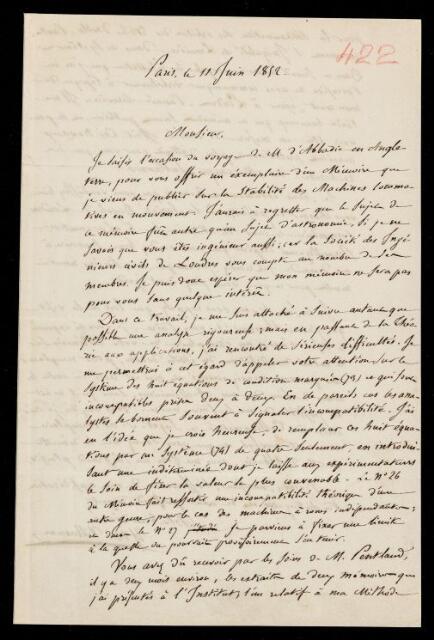 422
Paris, le 11 Juin 1852
Monsieur,
Je saisis l'occasion du voyage de M. d'Abbadie en Angle-
terre, pour vous offrir un exemplaire d'un Mémoire que
je viens de publier sur la Stabilité des Machines locomo-
tives en mouvement. J'aurais à regretter que le sujet de
ce mémoire fût autre qu'un sujet d'astronomie, si je ne
savais que vous êtes ingénieur aussi; car la Société des Ingé-
nieurs civils de Londres vous compte au nombre de ses
membres. Je puis donc espérer que mon mémoire ne sera pas
pour vous sans quelque intérêt.
Dans ce travail, je me suis attaché à suivre autant que
possible une analyse rigoureuse; mais en passant de la théo-
rie aux applications, j'ai rencontré de sérieuses difficultés. Je
me permettrai à cet égard d'appeler votre attention sur le
système des huit équations de condition marquées (73) et qui sont
incompatibles prises deux à deux. En de pareils cas les ana-
lystes se bornent souvent à signaler l'incompatibilité. J'ai
eu l'idée que je crois heureuse, de remplacer ces huit équa-
tions par un système (74) de quatre seulement, en introdui-
sant une indéterminée dont je laisse aux expérimentateurs
le soin de fixer la valeur la plus convenable. Le N° 26
du Mémoire fait ressortir une incompatibilité théorique d'un
autre genre, pour le cas des machines à roues indépendantes;
et dans le N° 27 je parviens à fixer une limite
à laquelle on pourrait provisoirement s'en tenir.
Vous avez dû recevoir par les soins de M. Pentland,
il y a deux mois environ, les extraits de deux mémoires que
j'ai présentés à l'Institut, l'un relatif à ma Méthode